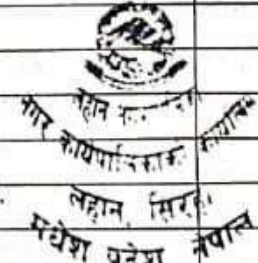 लहान
नगर कार्यपालिकाको कार्यालय
लहान, सिरहा
मधेश प्रदेश नेपाल